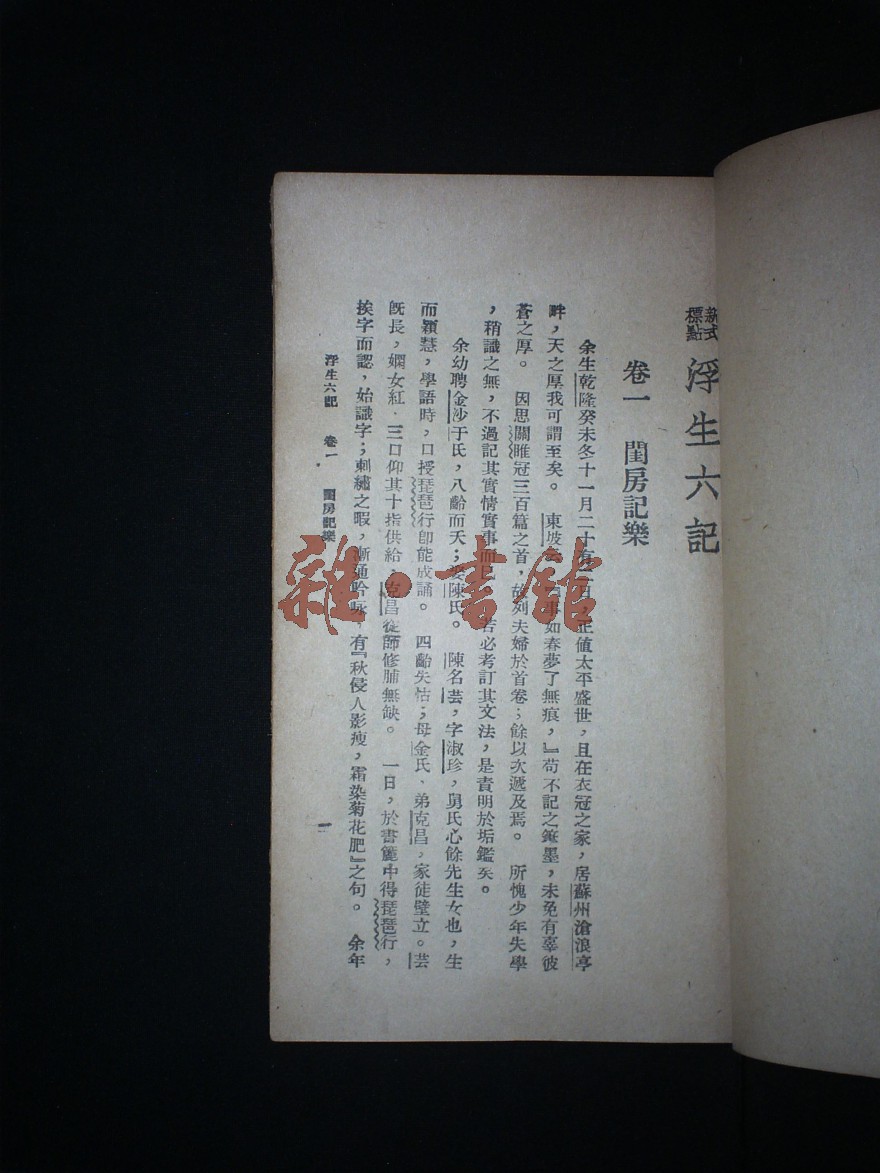 新式標點 浮生六記
卷一 閨房記樂
余生乾隆癸未冬十一月二十有二日,正値太平盛世,且在衣冠之家,居蘇州滄浪亭
畔,天之厚我可謂至矣。東坡云『事如春夢了無痕,』苟不記之筆墨,未免有辜彼
蒼之厚。因思關雎冠三百篇之首,故列夫婦於首卷;餘以次遞及焉。所愧少年失學
,稍識之無,不過記其實情實事而已。若必考訂其文法,是責明於垢鑑矣。
余幼聘金沙于氏,八齡而夭;娶陳氏。陳名芸,字淑珍,舅氏心餘先生女也,生
而穎慧,學語時,口授琵琶行卽能成誦。四齡失怙;母金氏、弟克昌,家徒壁立。芸
旣長,嫻女紅,三口仰其十指供給,克昌從師修脯無缺。一日,於書簏中得琵琶行,
挨字而認,始識字;刺繡之暇,漸通吟咏,有『秋侵人影瘦,霜染菊花肥』之句。余年
浮生六記 卷一 閨房記樂 一
雜·書館